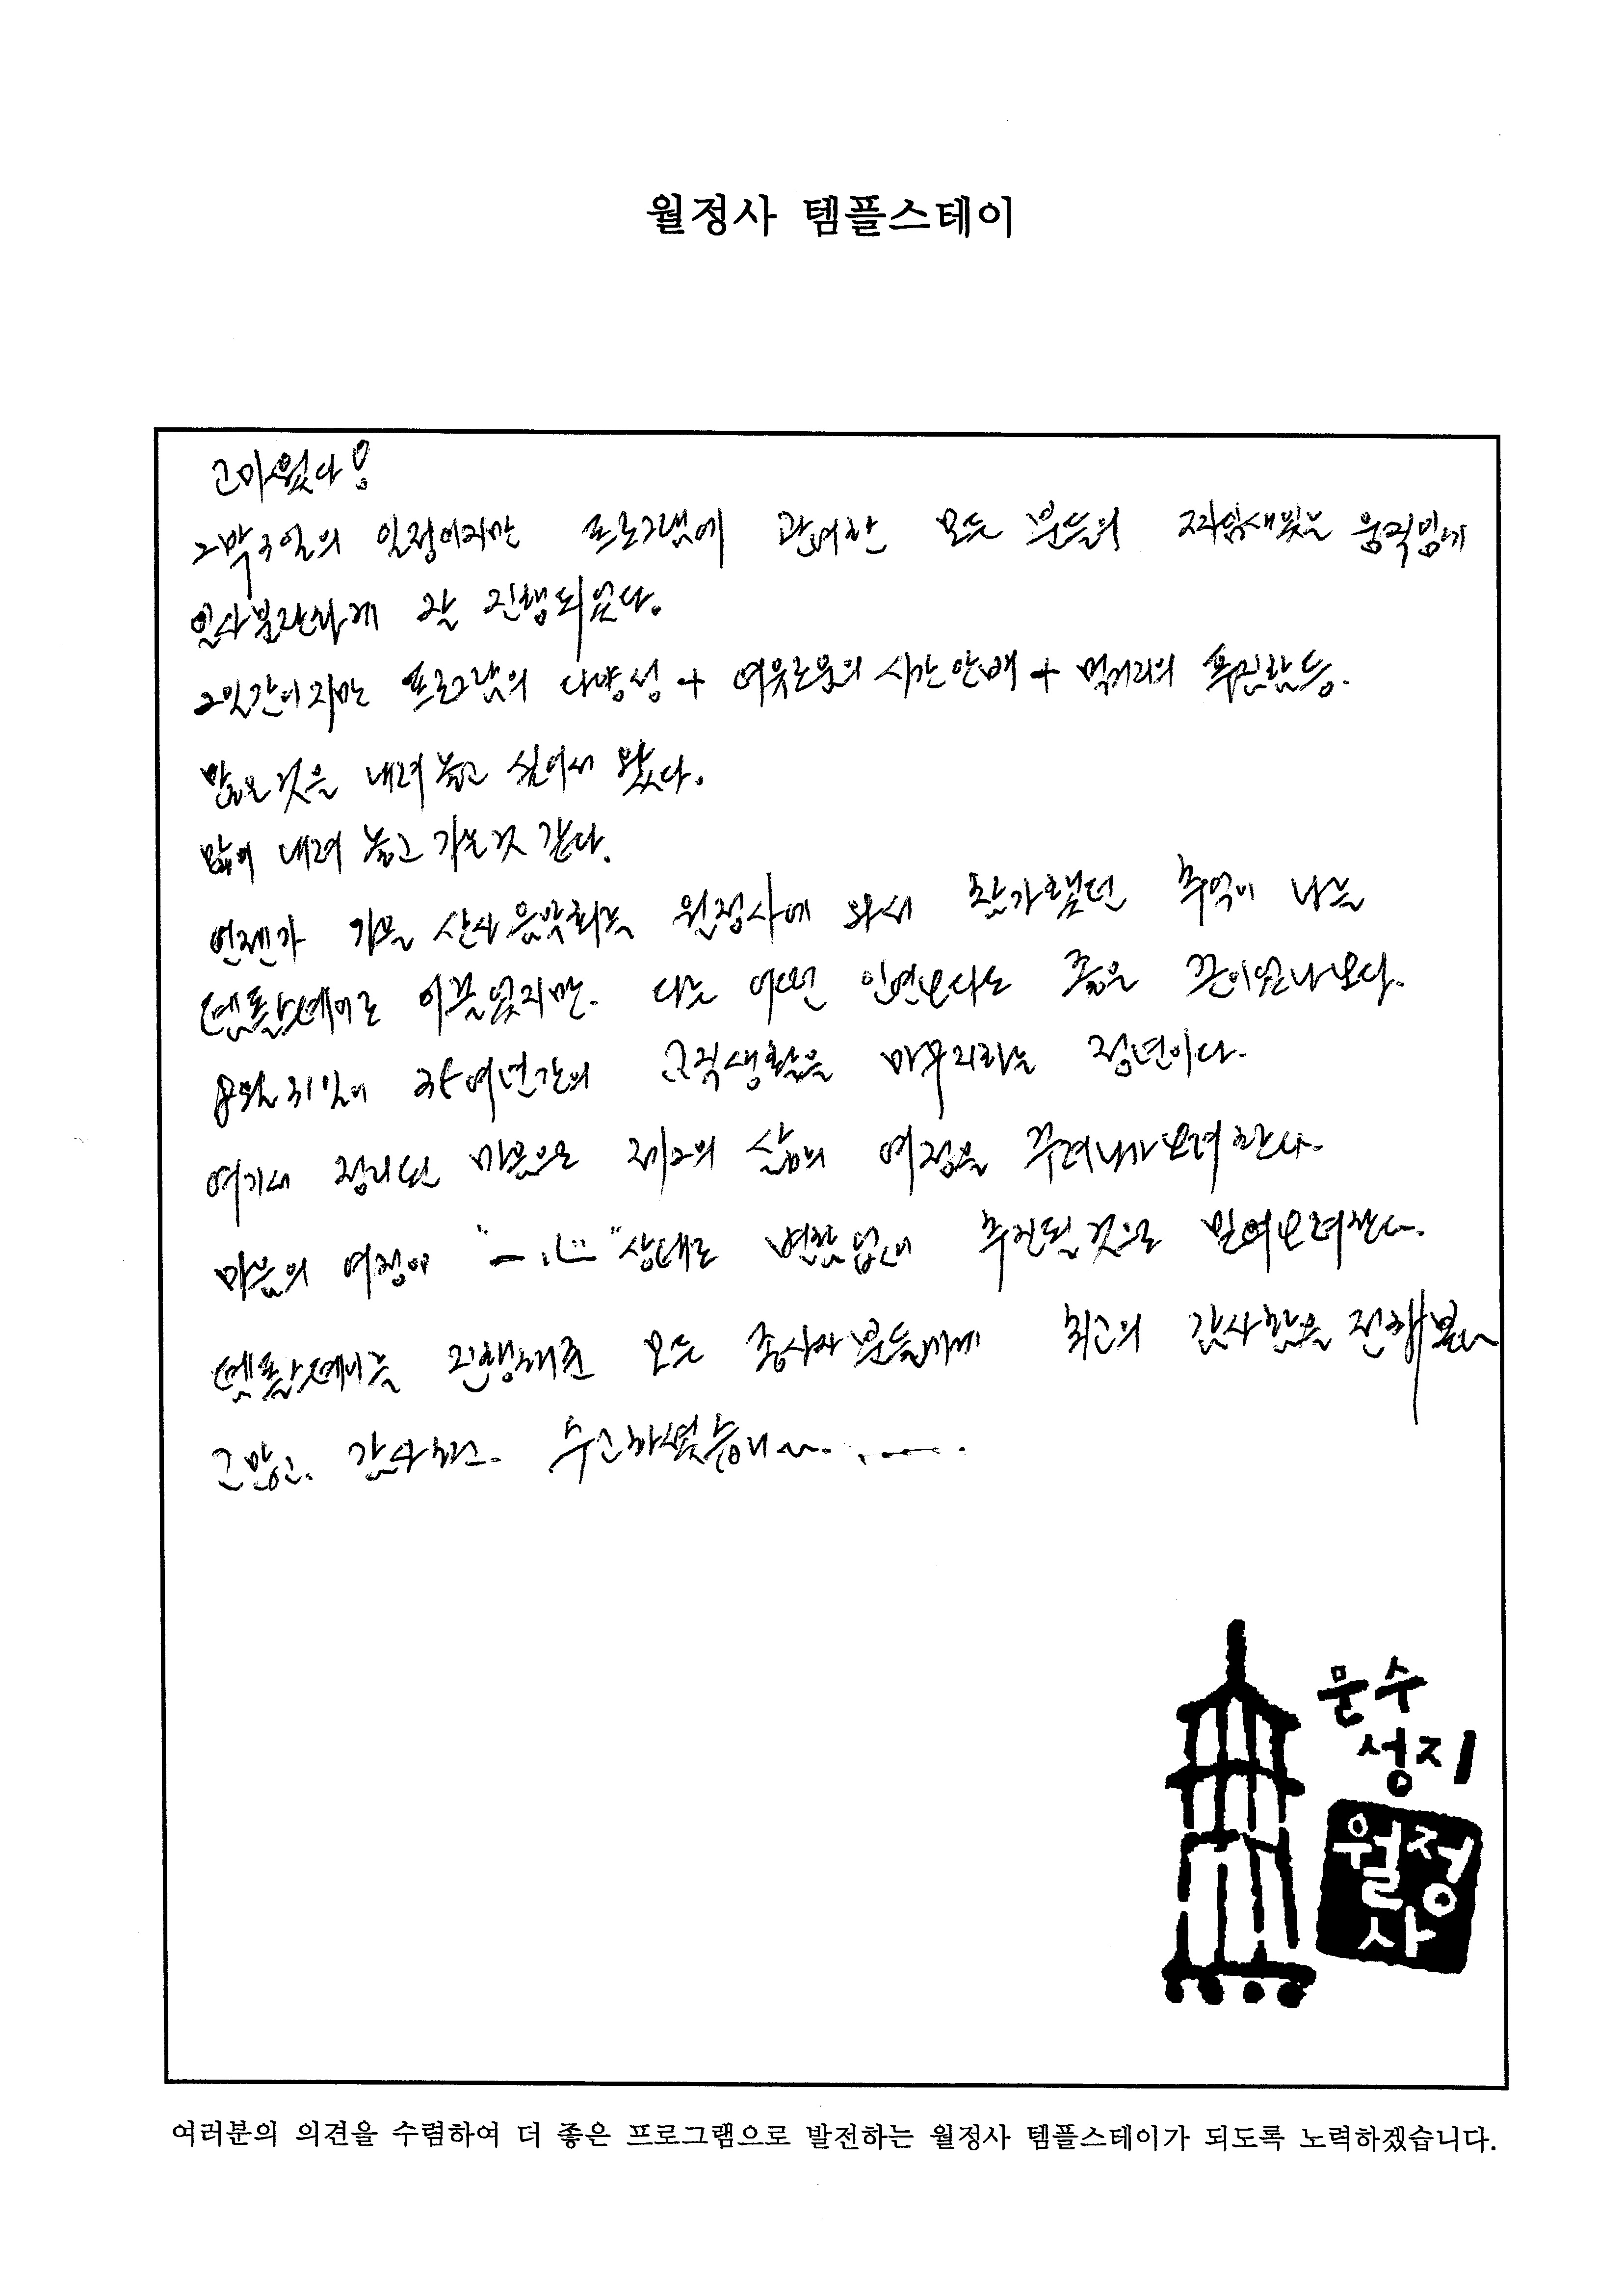 월정사 템플스테이
고마웠다!
2박3일의 일정이지만 프로그램에 관여한 모든 분들의 짜임새있는 움직임에
일사불란하게 잘 진행되었다.
2일간이지만 프로그램의 다양성 + 여유로움의 시간안배 + 먹거리의 푸짐함등.
많은것을 내려놓고 싶어서 왔다.
많이 내려놓고 가는것 같다.
언젠가 가을 산사음악회를 월정사에 와서 참가했던 추억이 나를
템플스테이로 이끌었지만. 다른 어떤 인연보다도 좋은 끈이었나보다.
8월31일이 여년간의 공직생활을 마무리하는 정년이다.
여기서 정리된 마음으로 제2의 삶의 여정을 꾸려나가보려한다.
마음의 여정이 상태로 변함없이 추진될것으로 믿어보려한다.
템플스테이를 진행해준 모든 종사자분들에게 최고의 감사함을 전해본다
고맙고. 감사하고. 수고하셨습니다.
문수
성지
월정
사
여러분의 의견을 수렴하여 더 좋은 프로그램으로 발전하는 월정사 템플스테이가 되도록 노력하겠습니다.